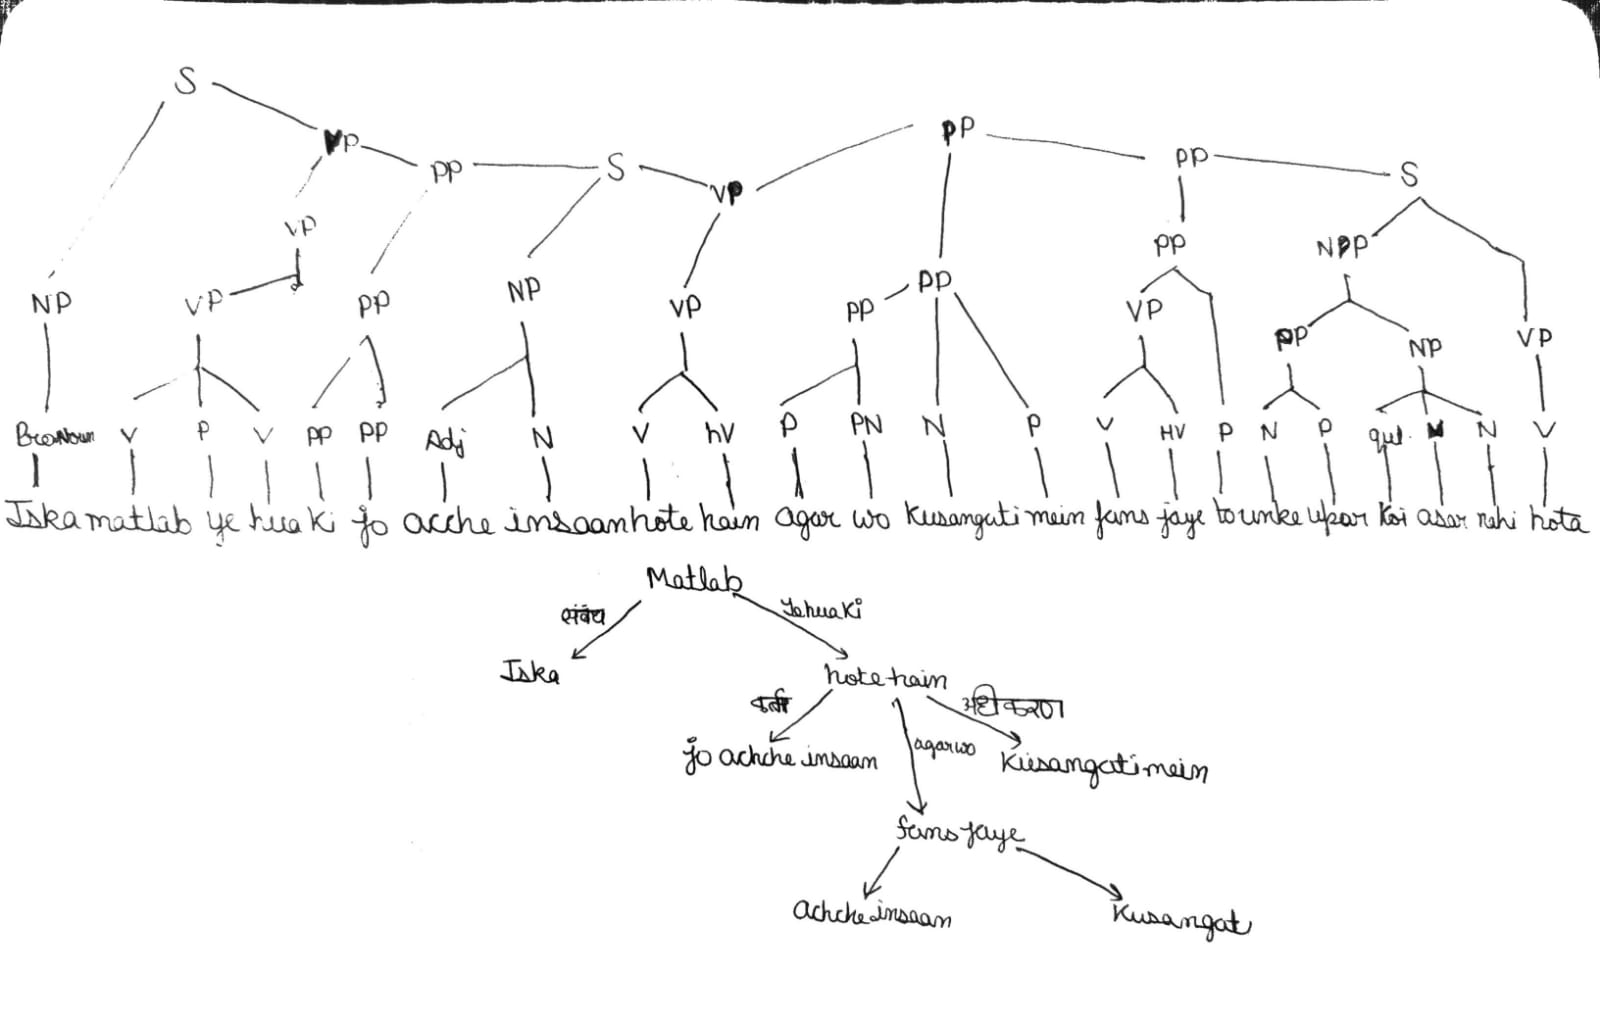 S
VP PP S VP PP PP S
VP PP NPP
NP VP PP NP VP PP PP VP PP NP VP
V P V PP PP Adj N V hV P PN N P V HV P N P qul. N V
Iska matlab ye hua ki jo acche insaan hote hain agar wo kusangati mein fans jaye to unke upar koi asar nahi hota
Matlab
संबंध Ye hua ki
Iska hote hain
कर्ता अधिकरण
jo achche insaan agar wo kusangati mein
fans jaye
Achche insaan Kusangat